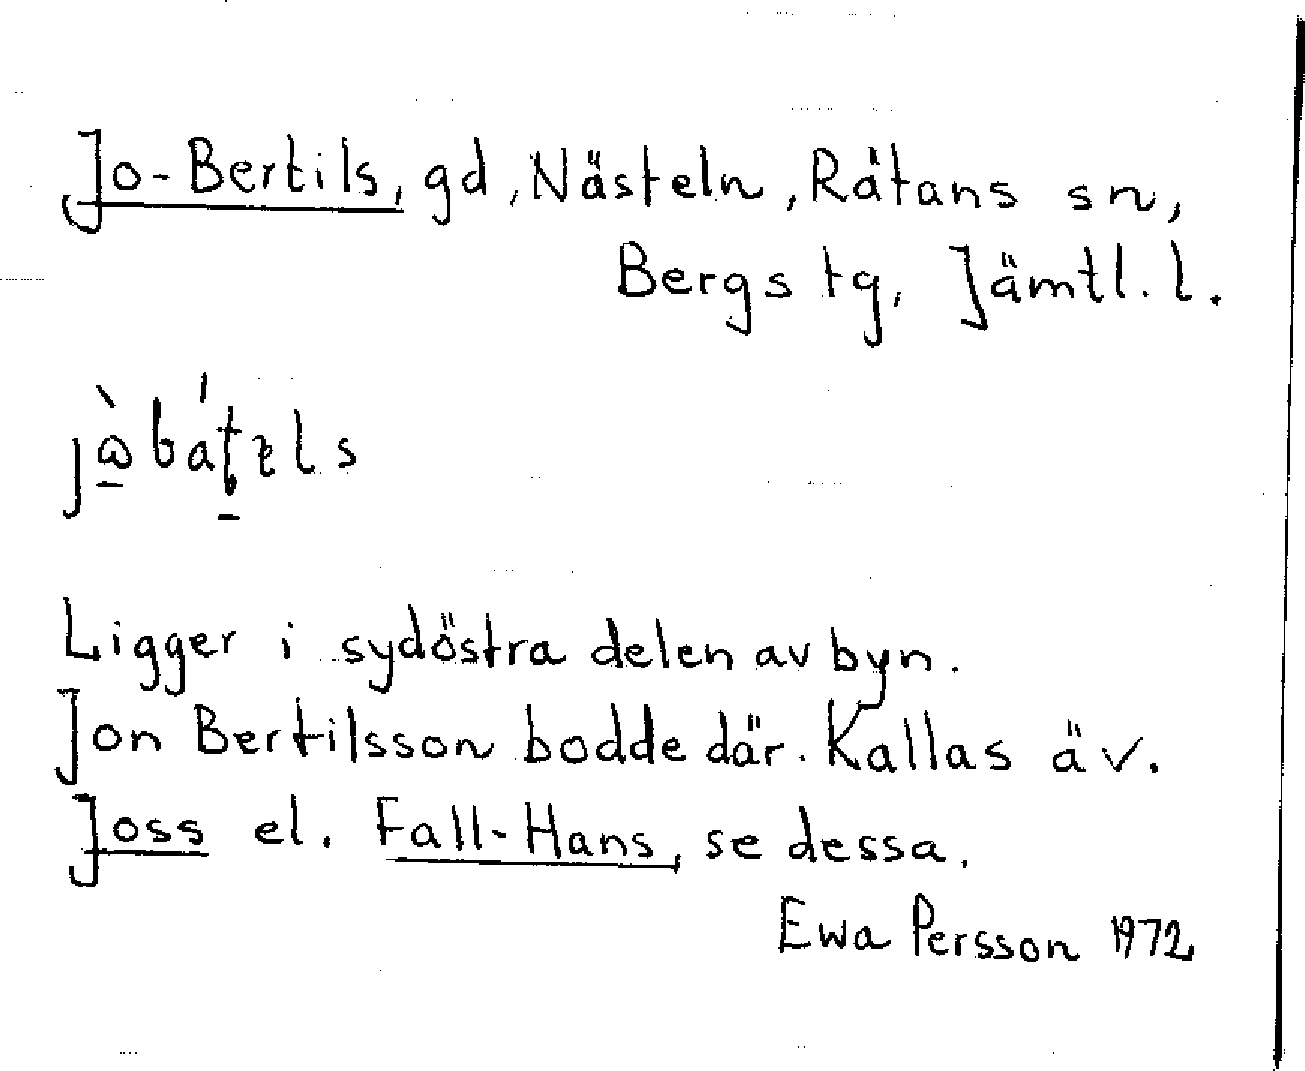 Jo-Bertils, gd, Nästeln, Rätans sn,
Bergs tg, Jämtl. l.
Ligger i sydöstra delen av byn.
Jon Bertilsson bodde där. Kallas äv.
Joss el. Fall-Hans, se dessa.
Ewa Persson 1972